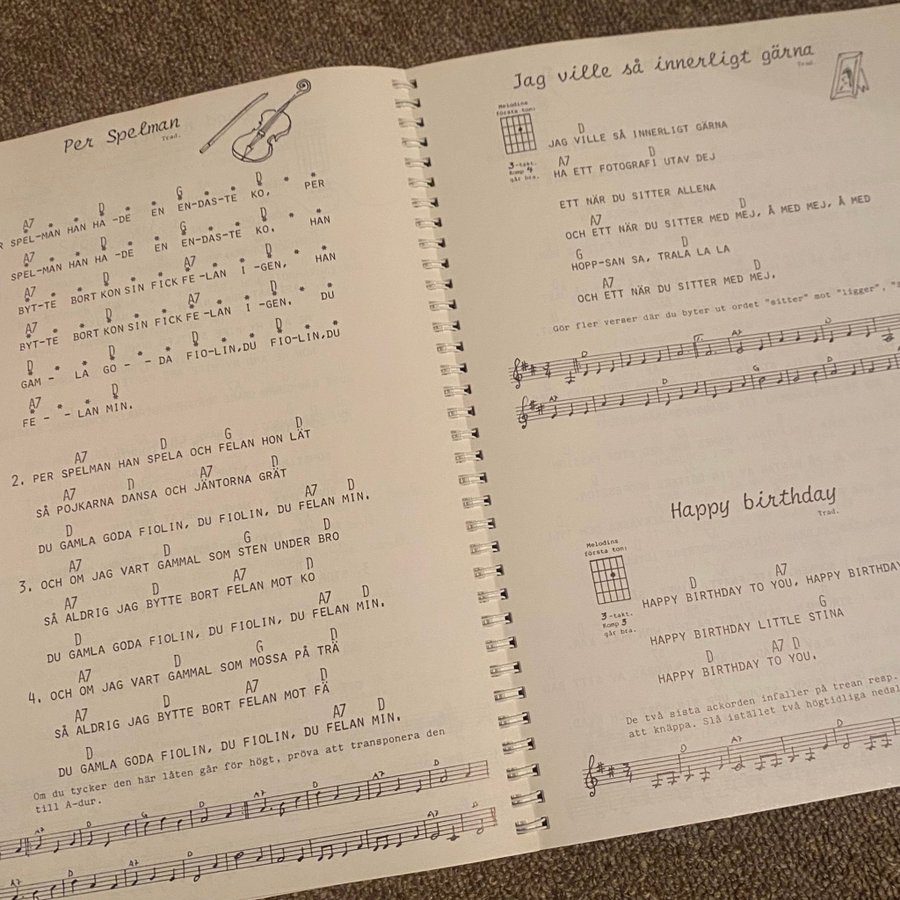 Per Spelman
Trad.
A7 D G D
SPEL-MAN HAN HA -DE EN EN-DAS-TE KO, * PER
A7 D G D
SPEL-MAN HAN HA -DE EN EN-DAS-TE KO. * HAN
A7 D A7 D
BYT-TE BORT KON SIN FICK FE-LAN I -GEN, * HAN
A7 D A7 D
BYT-TE BORT KON SIN FICK FE-LAN I -GEN. * DU
D G D D
GAM - * LA GO - * - DA FIO-LIN,DU FIO-LIN,DU
A7 D
FE - * - LAN MIN.
A7 D G D
2. PER SPELMAN HAN SPELA OCH FELAN HON LÄT
A7 D A7 D
SÅ POJKARNA DANSA OCH JÄNTORNA GRÄT
D A7 D
DU GAMLA GODA FIOLIN, DU FIOLIN, DU FELAN MIN.
A7 D G D
3. OCH OM JAG VART GAMMAL SOM STEN UNDER BRO
A7 D A7 D
SÅ ALDRIG JAG BYTTE BORT FELAN MOT KO
D A7 D
DU GAMLA GODA FIOLIN, DU FIOLIN, DU FELAN MIN.
A7 D G D
4. OCH OM JAG VART GAMMAL SOM MOSSA PÅ TRÄ
A7 D A7 D
SÅ ALDRIG JAG BYTTE BORT FELAN MOT FÄ
D A7 D
DU GAMLA GODA FIOLIN, DU FIOLIN, DU FELAN MIN.
Om du tycker den här låten går för högt, pröva att transponera den
till A-dur.
A7 D G D A7 D A7 D
A7 D D A7 D
Jag ville så innerligt gärna
Trad.
Melodins
första ton:
3-takt.
Komp 4
går bra.
D
JAG VILLE SÅ INNERLIGT GÄRNA
A7 D
HA ETT FOTOGRAFI UTAV DEJ
ETT NÄR DU SITTER ALLENA
A7 D
OCH ETT NÄR DU SITTER MED MEJ, Å MED MEJ, Å MED
G D
HOPP-SAN SA, TRALA LA LA
A7 D
OCH ETT NÄR DU SITTER MED MEJ.
Gör fler verser där du byter ut ordet "sitter" mot "ligger",
D A7 D A7
A7 D G D
Happy birthday
Trad.
Melodins
första ton:
3-takt.
Komp 3
går bra.
D A7
HAPPY BIRTHDAY TO YOU, HAPPY BIRTHDAY
G
HAPPY BIRTHDAY LITTLE STINA
D A7 D
HAPPY BIRTHDAY TO YOU.
De två sista ackorden infaller på trean resp.
att knäppa. Slå istället två högtidliga
D A7 D